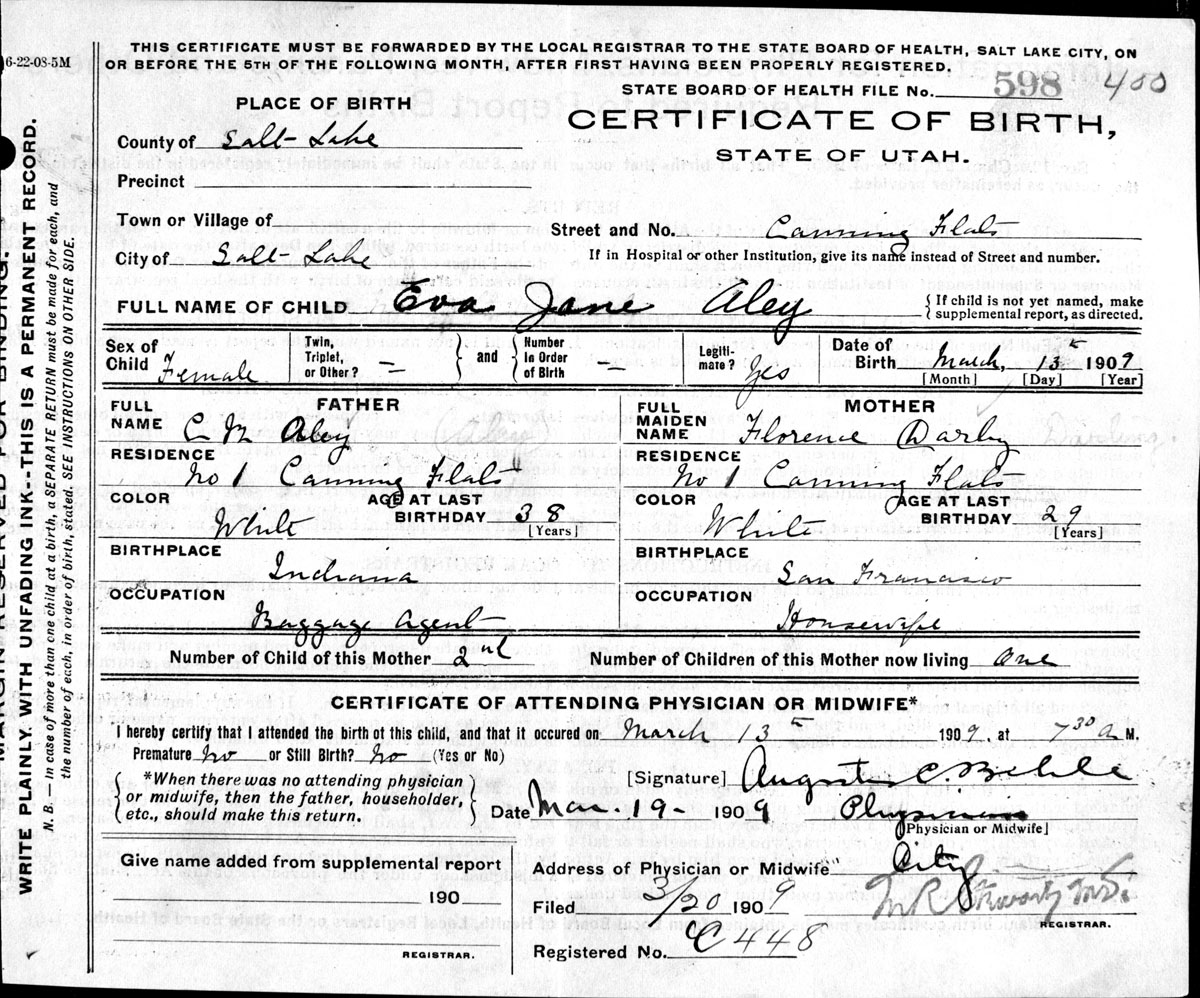 6-22-08-5M
THIS CERTIFICATE MUST BE FORWARDED BY THE LOCAL REGISTRAR TO THE STATE BOARD OF HEALTH, SALT LAKE CITY, ON
OR BEFORE THE 5TH OF THE FOLLOWING MONTH, AFTER FIRST HAVING BEEN PROPERLY REGISTERED.
STATE BOARD OF HEALTH FILE No. 598 400
PLACE OF BIRTH
CERTIFICATE OF BIRTH,
STATE OF UTAH.
County of Salt Lake
Precinct
Town or Village of
Street and No. Canning Flats
City of Salt Lake
If in Hospital or other Institution, give its name instead of Street and number.
FULL NAME OF CHILD Eva Jane Aley
{ If child is not yet named, make
supplemental report, as directed.
Sex of Child Female
Twin, Triplet, or Other? — } and { Number in Order of Birth —
Legiti-mate? Yes
Date of Birth March, 13th 1909
[Month] [Day] [Year]
FATHER
FULL NAME C M Aley
RESIDENCE No 1 Canning Flats
COLOR White
AGE AT LAST BIRTHDAY 38
[Years]
BIRTHPLACE Indiana
OCCUPATION Baggage Agent
MOTHER
FULL MAIDEN NAME Florence Darby
RESIDENCE No 1 Canning Flats
COLOR White
AGE AT LAST BIRTHDAY 29
[Years]
BIRTHPLACE San Francisco
OCCUPATION Housewife
Number of Child of this Mother 2nd
Number of Children of this Mother now living One
CERTIFICATE OF ATTENDING PHYSICIAN OR MIDWIFE*
I hereby certify that I attended the birth of this child, and that it occured on March 13th 1909, at 7 30 a M.
Premature No or Still Birth? No (Yes or No)
*When there was no attending physician
or midwife, then the father, householder,
etc., should make this return.
[Signature] Augustus C. Behle
Date Mar. 19 - 1909 Physician
[Physician or Midwife]
Give name added from supplemental report
190
REGISTRAR.
Address of Physician or Midwife City
Filed 3/20 1909
REGISTRAR.
Registered No. C448
MARGIN RESERVED FOR BINDING.
WRITE PLAINLY, WITH UNFADING INK-THIS IS A PERMANENT RECORD.
N. B. — In case of more than one child at a birth, a SEPARATE RETURN must be made for each, and
the number of each, in order of birth, stated. SEE INSTRUCTIONS ON OTHER SIDE.